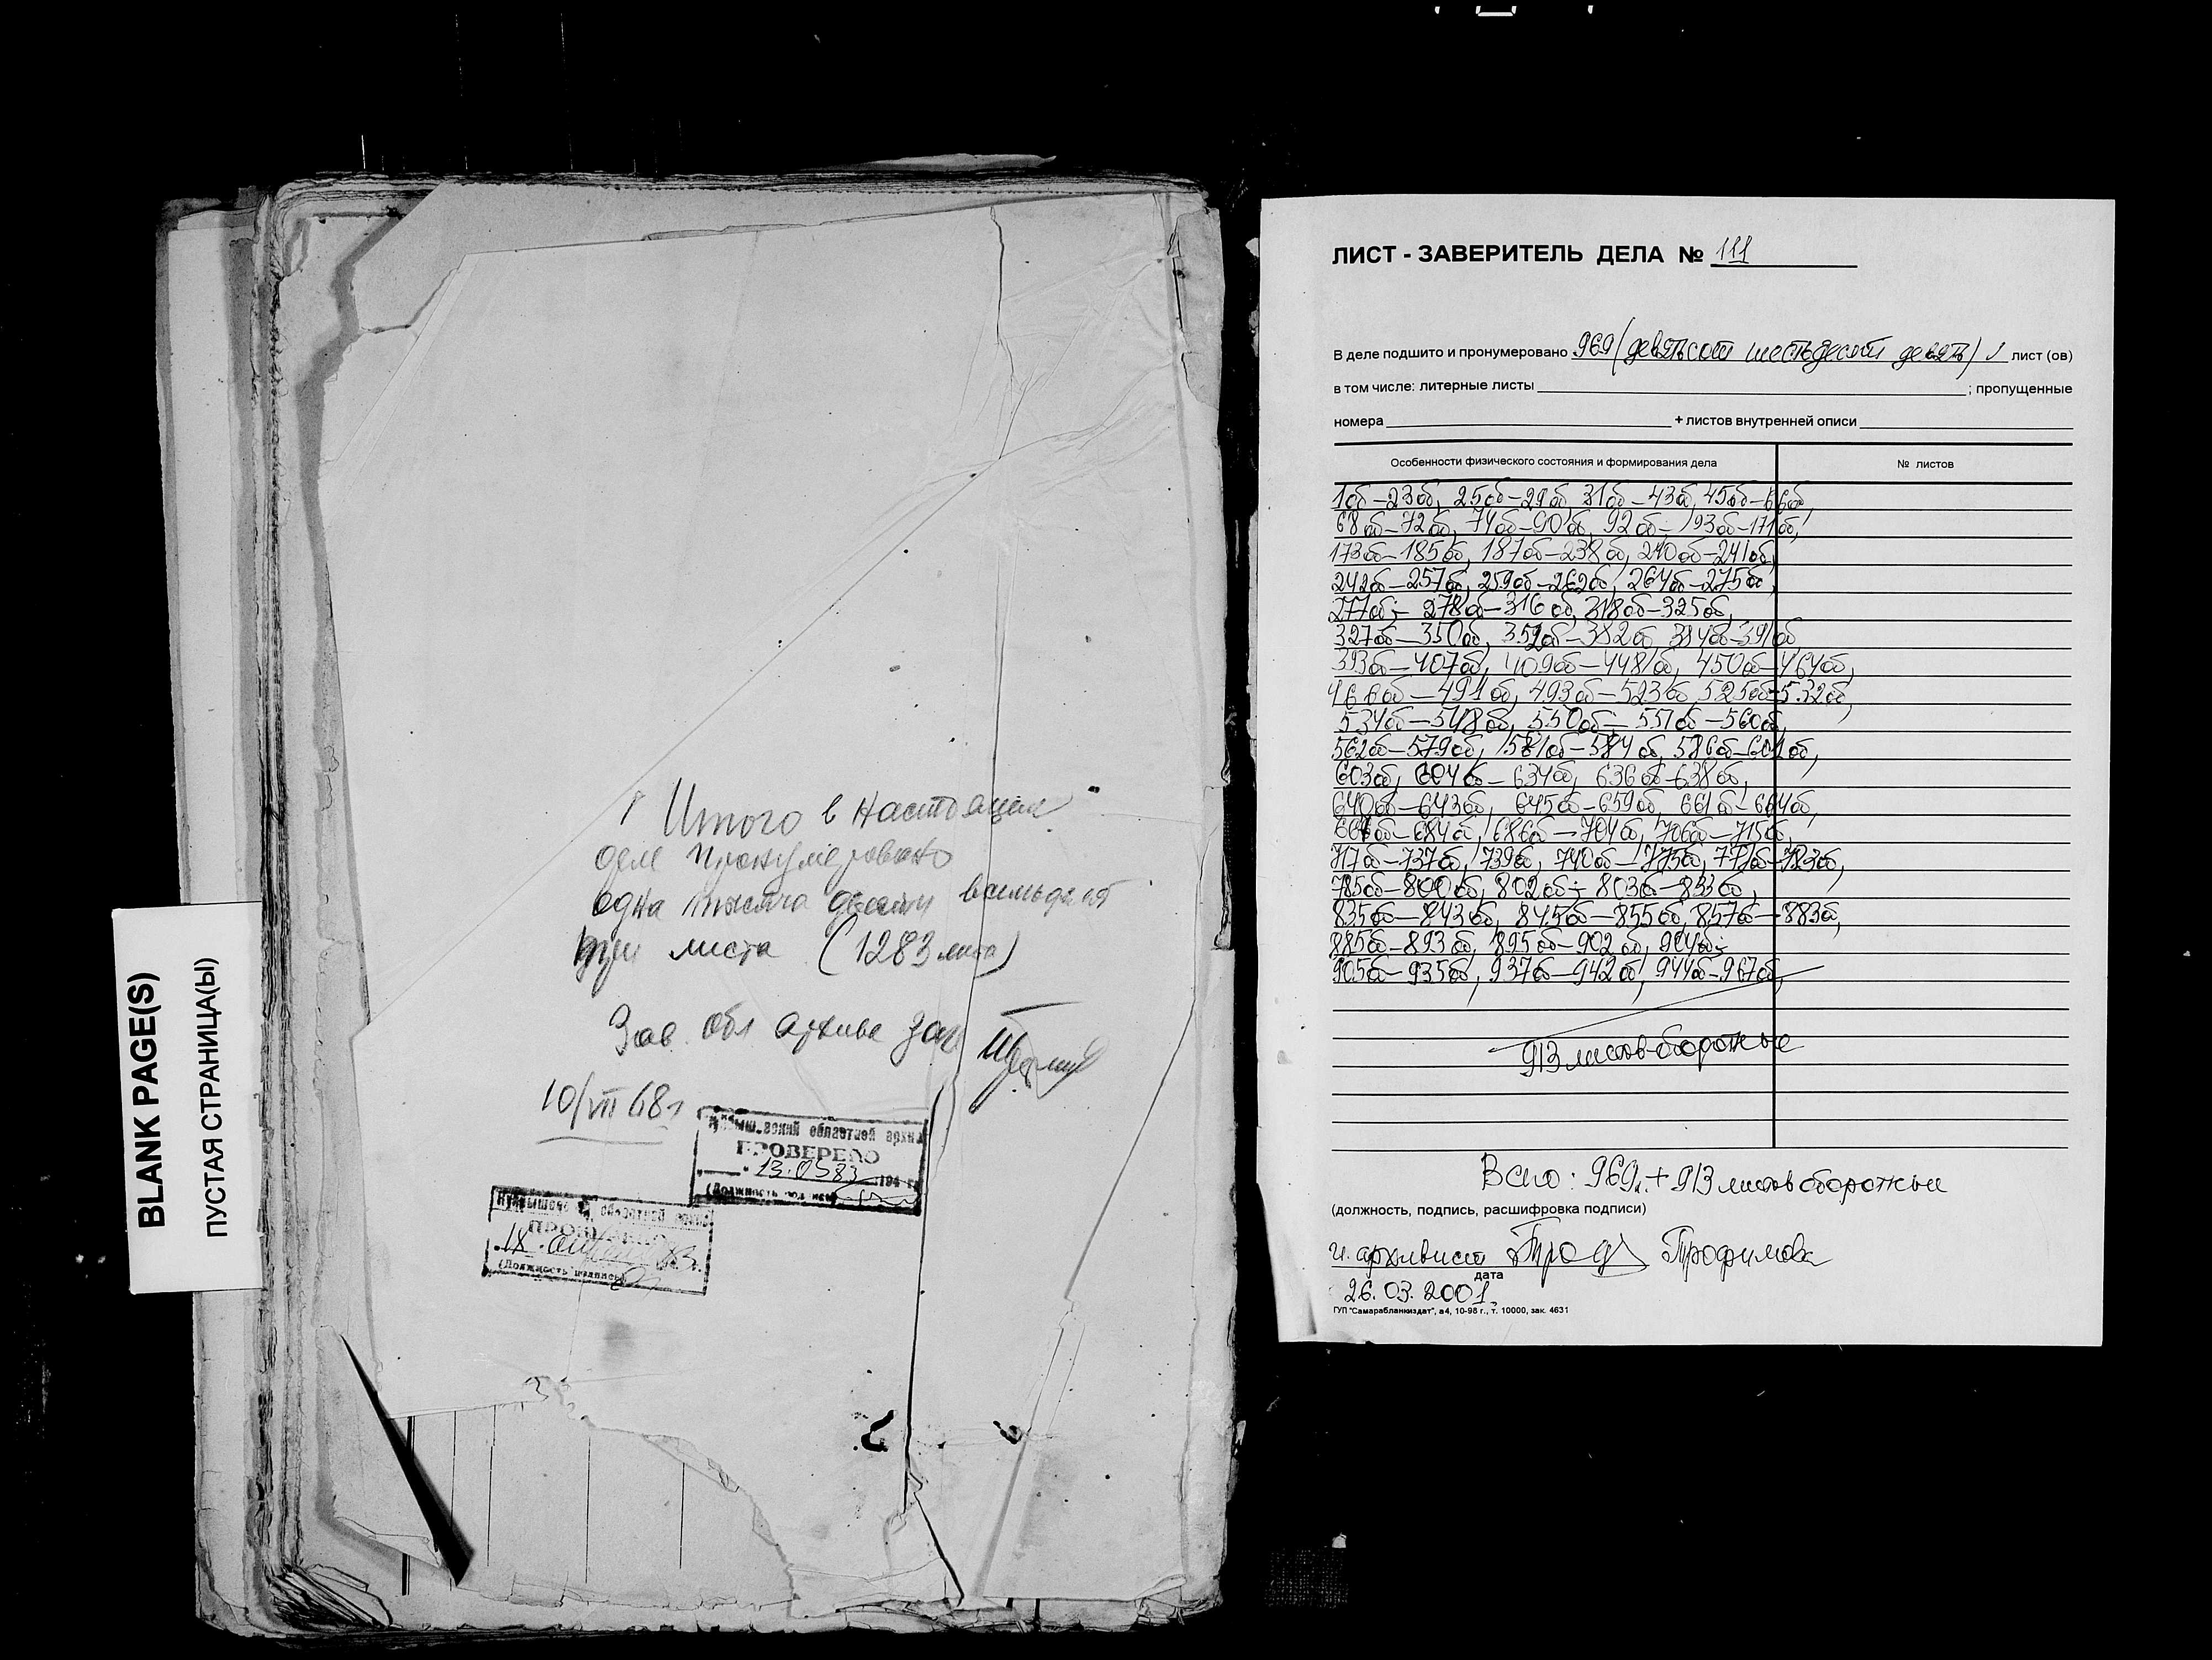 BLANK PAGE(S)
ПУСТАЯ СТРАНИЦА(Ы)
Итого в настоящем
деле пронумеровано
одна тысяча двести восемьдесят
три листа (1283 листа)
Зав. обл архива ЗАГС
10/VII 68г
областной архив
ПРОВЕРЕНО
13.05.83 194 г.
(Должность
(Должность подпись)
ЛИСТ - ЗАВЕРИТЕЛЬ ДЕЛА № 111
В деле подшито и пронумеровано 969 (девятьсот шестьдесят девять) лист (ов)
в том числе: литерные листы ; пропущенные
номера + листов внутренней описи
Особенности физического состояния и формирования дела № листов
1об-23об, 25об-29об 31об-43об, 45об-66об,
68об-72об, 74об-90об, 92об-; 93об-171об,
173об-185об, 187об-238об, 240об-241об,
242об-257об, 259об-262об, 264об-275об,
277об-; 278об-316об, 318об-325об,
327об-350об, 352об-382об, 384об-391об
393об-407об, 409об-448об, 450об-464об,
466об-491об, 493об-523об, 525об-532об,
534об-548об, 550об-; 551об-560об,
562об-579об, 581об-584об, 586об-601об,
603об, 604об-634об, 636об-638об,
640об-643об, 645об-659об, 661об-664об,
666об-684об, 686об-704об, 706об-715об,
717об-737об, 739об, 740об-775об, 777об-783об,
785об-800об, 802об-; 803об-833об,
835об-843об, 845об-855об, 857об-883об,
885об-893об, 895об-902об, 904об-;
905об-935об, 937об-942об, 944об-967об,
913 листов оборотные
Всего: 969л. + 913 листов оборотные
(должность, подпись, расшифровка подписи)
архивист Трофимова
дата
26.03.2001.
ГУП "Самарабланкиздат", а4, 10-98 г., т. 10000, зак. 4631